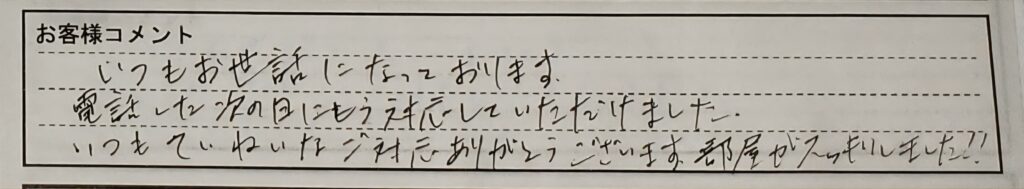 お客様コメント
いつもお世話になっております.
電話した次の日にもう対応していただけました.
いつもていねいなご対応ありがとうございます.部屋がスッキリしました!!